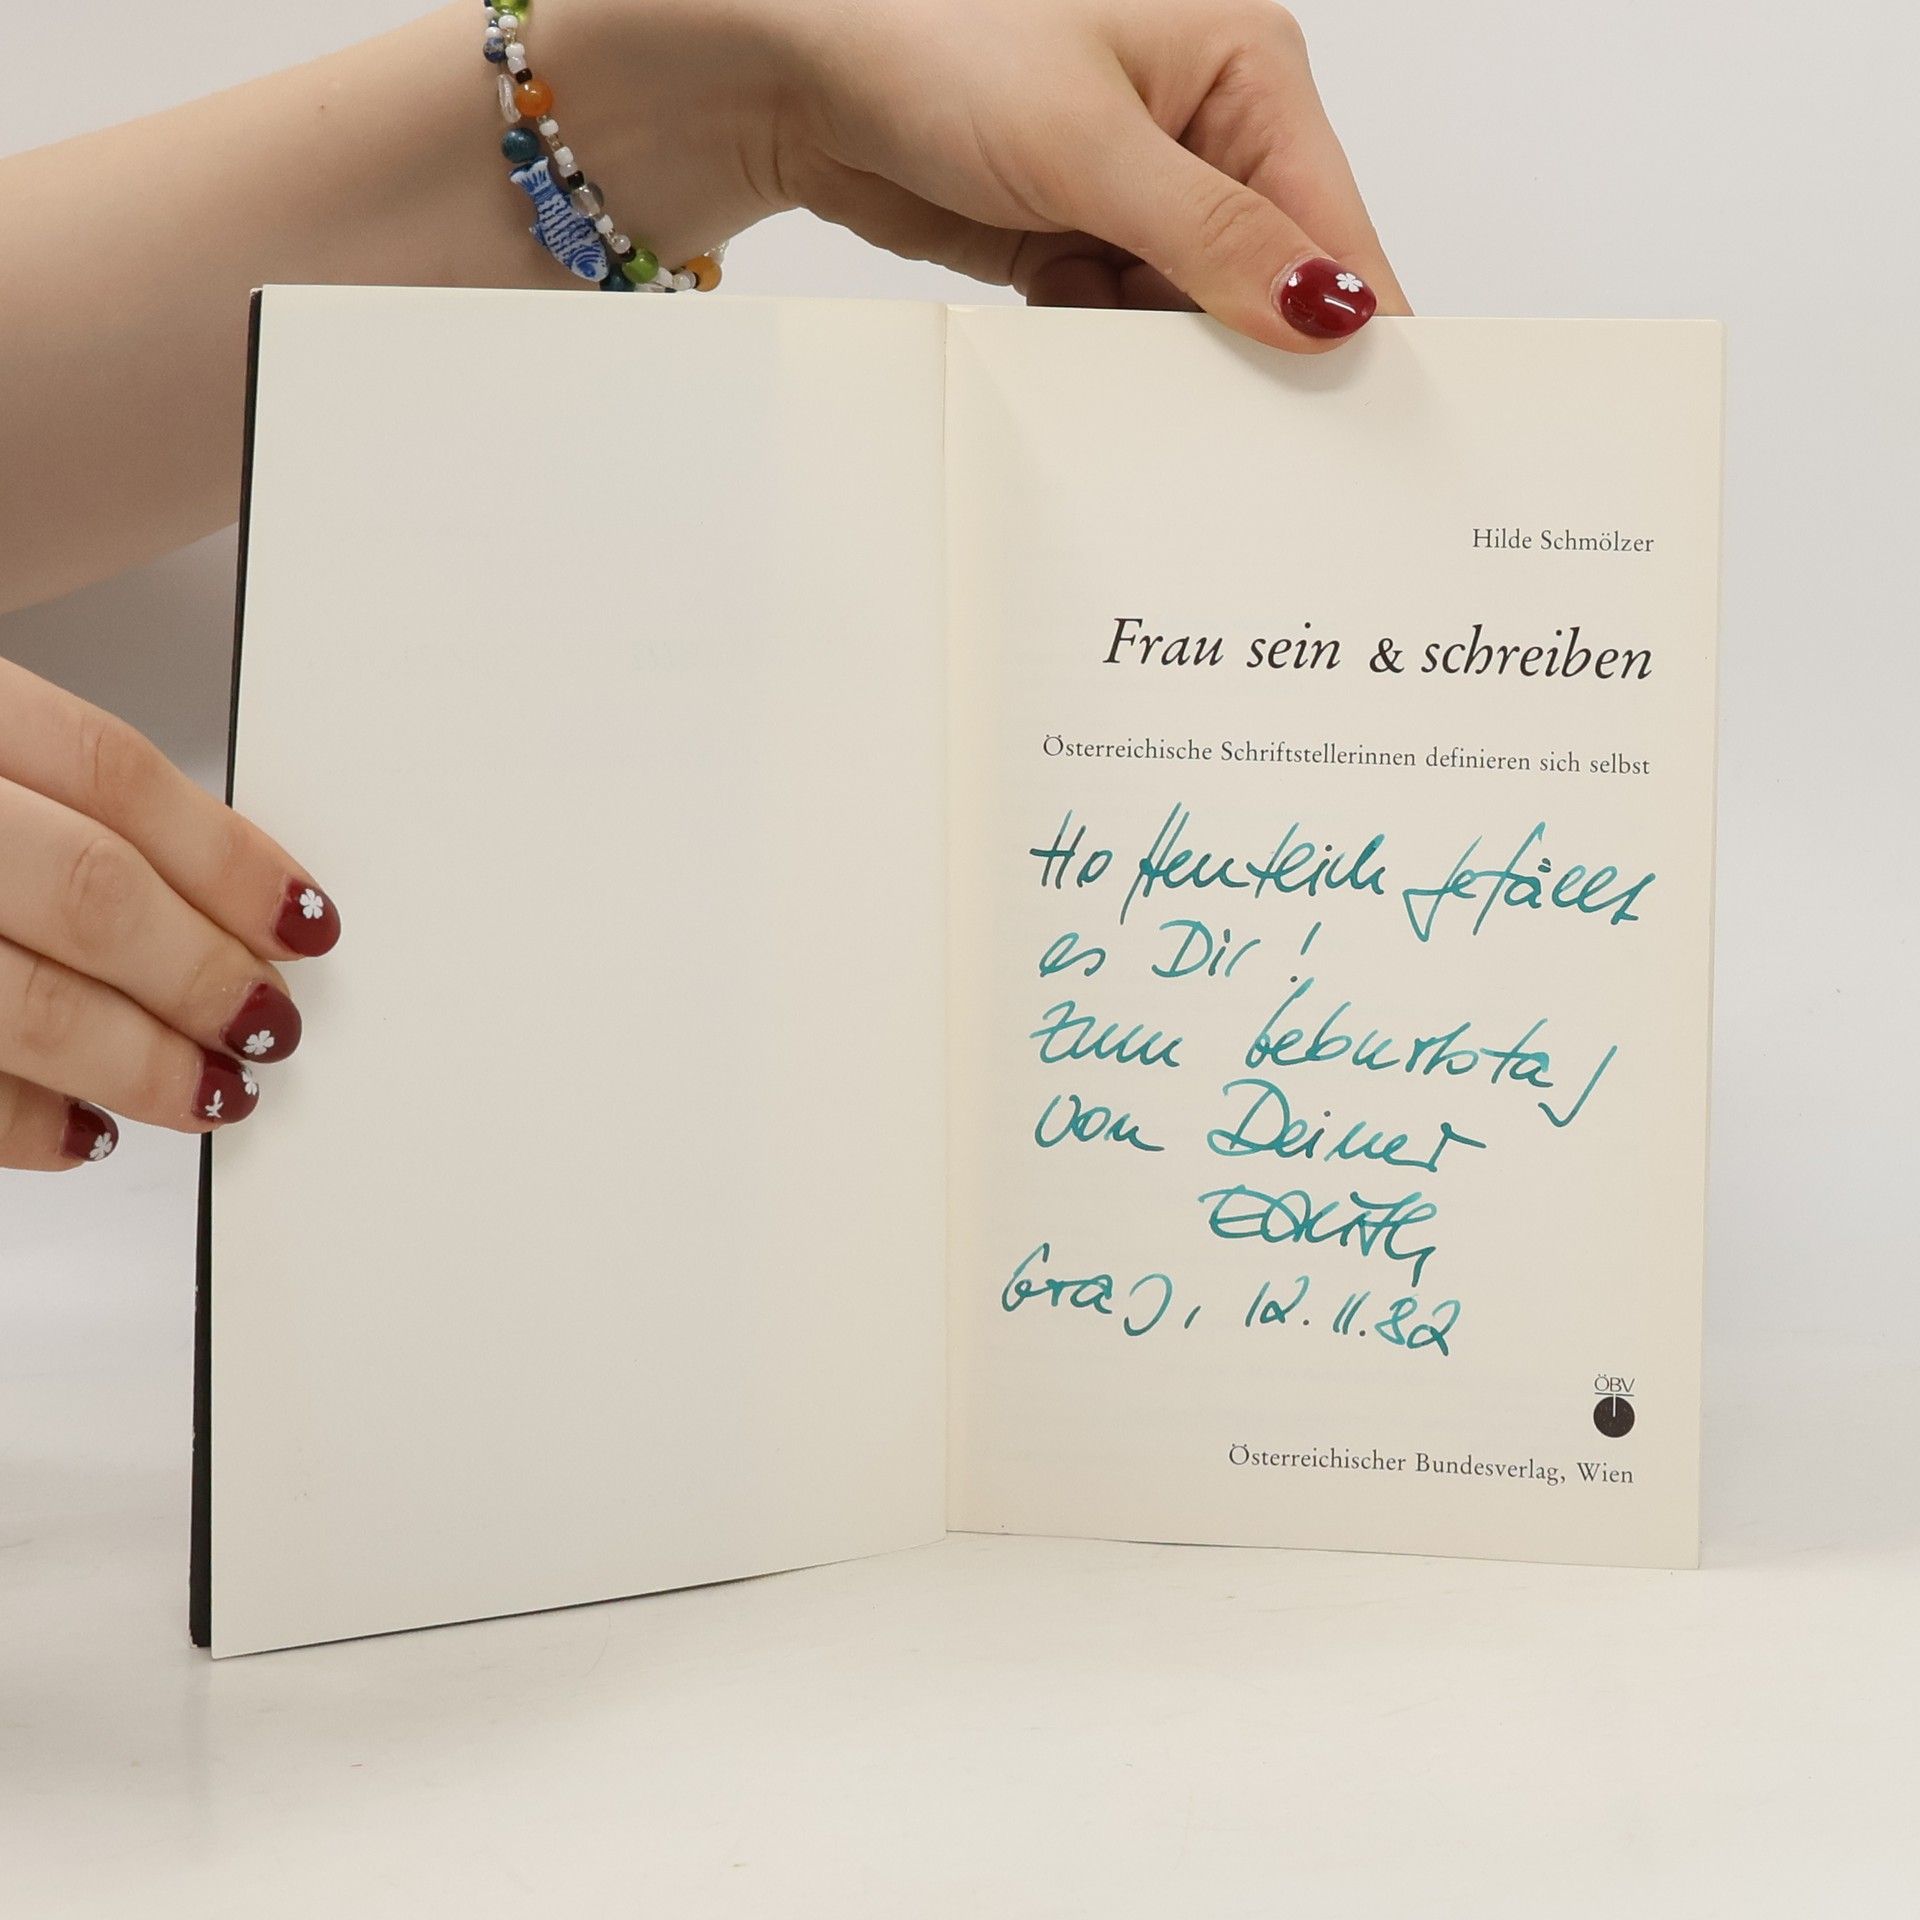 Hilde Schmölzer
Frau sein & schreiben
Österreichische Schriftstellerinnen definieren sich selbst
Hoffentlich gefällt
es Dir!
zum Geburtstag
von Deiner
Edith
Graz, 12.11.82
ÖBV
Österreichischer Bundesverlag, Wien